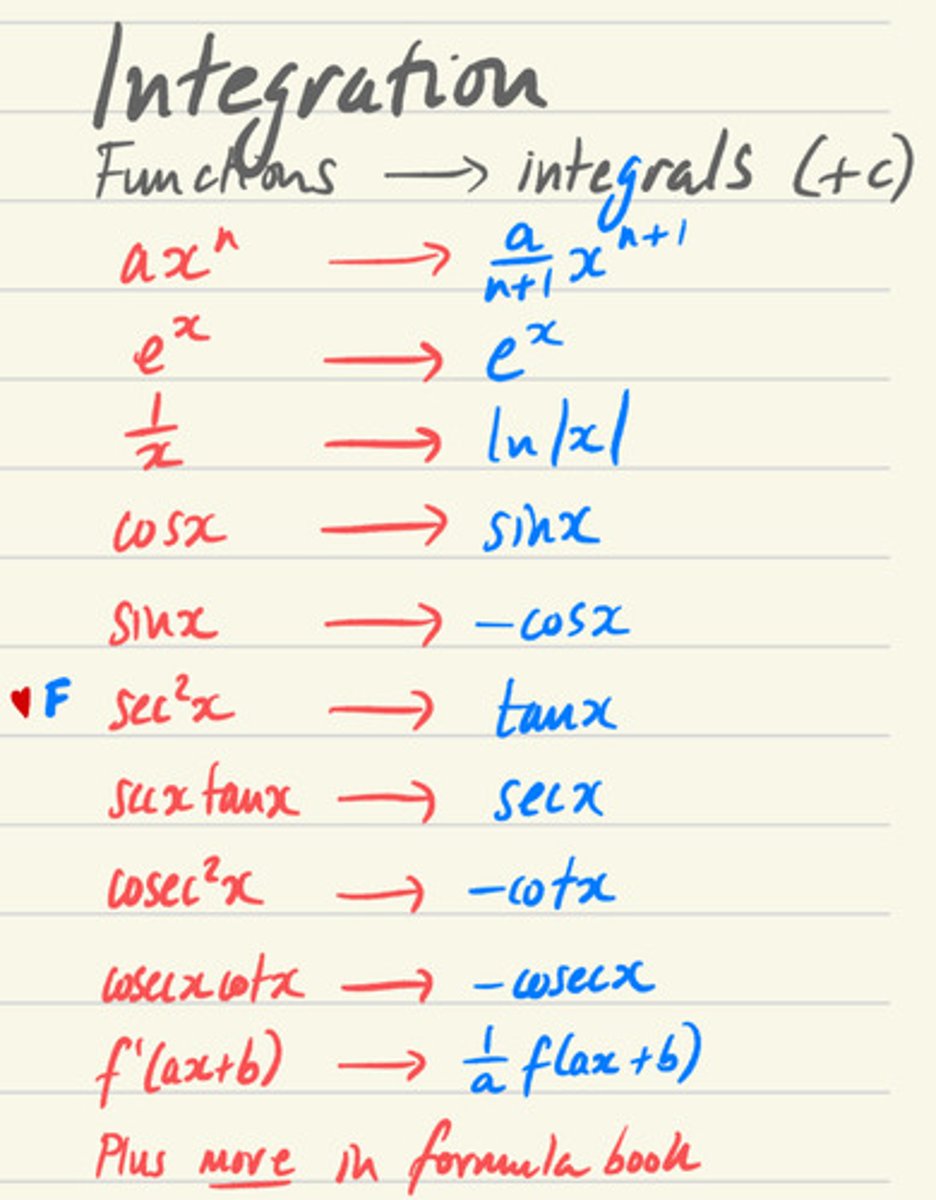 Integration
Functions → integrals (+c)
axⁿ → a/(n+1) xⁿ⁺¹
eˣ → eˣ
1/x → ln|x|
cosx → sinx
sinx → -cosx
♥ F sec²x → tanx
secxtanx → secx
cosec²x → -cotx
cosecxcotx → -cosecx
f'(ax+b) → 1/a f(ax+b)
Plus more in formula book